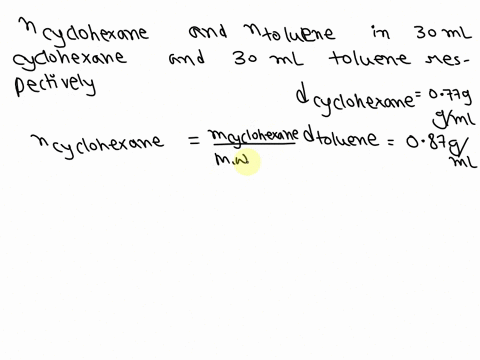 n cyclohexane and n toluene in 30 mL
cyclohexane and 30 mL toluene res-
pectively
d cyclohexane = 0.77g
g/ml
n cyclohexane = m cyclohexane d toluene = 0.87g/
m.w
mL